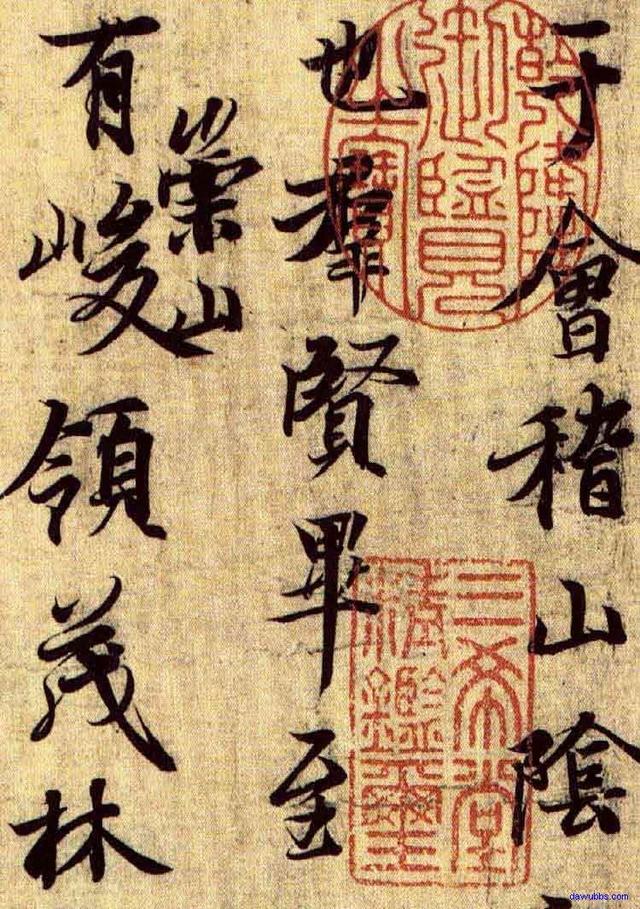 于會稽山陰
也羣賢畢至
崇山
有峻領茂林
乾隆
御覽
之寶
三希堂
精鑑璽
dawubbs.com